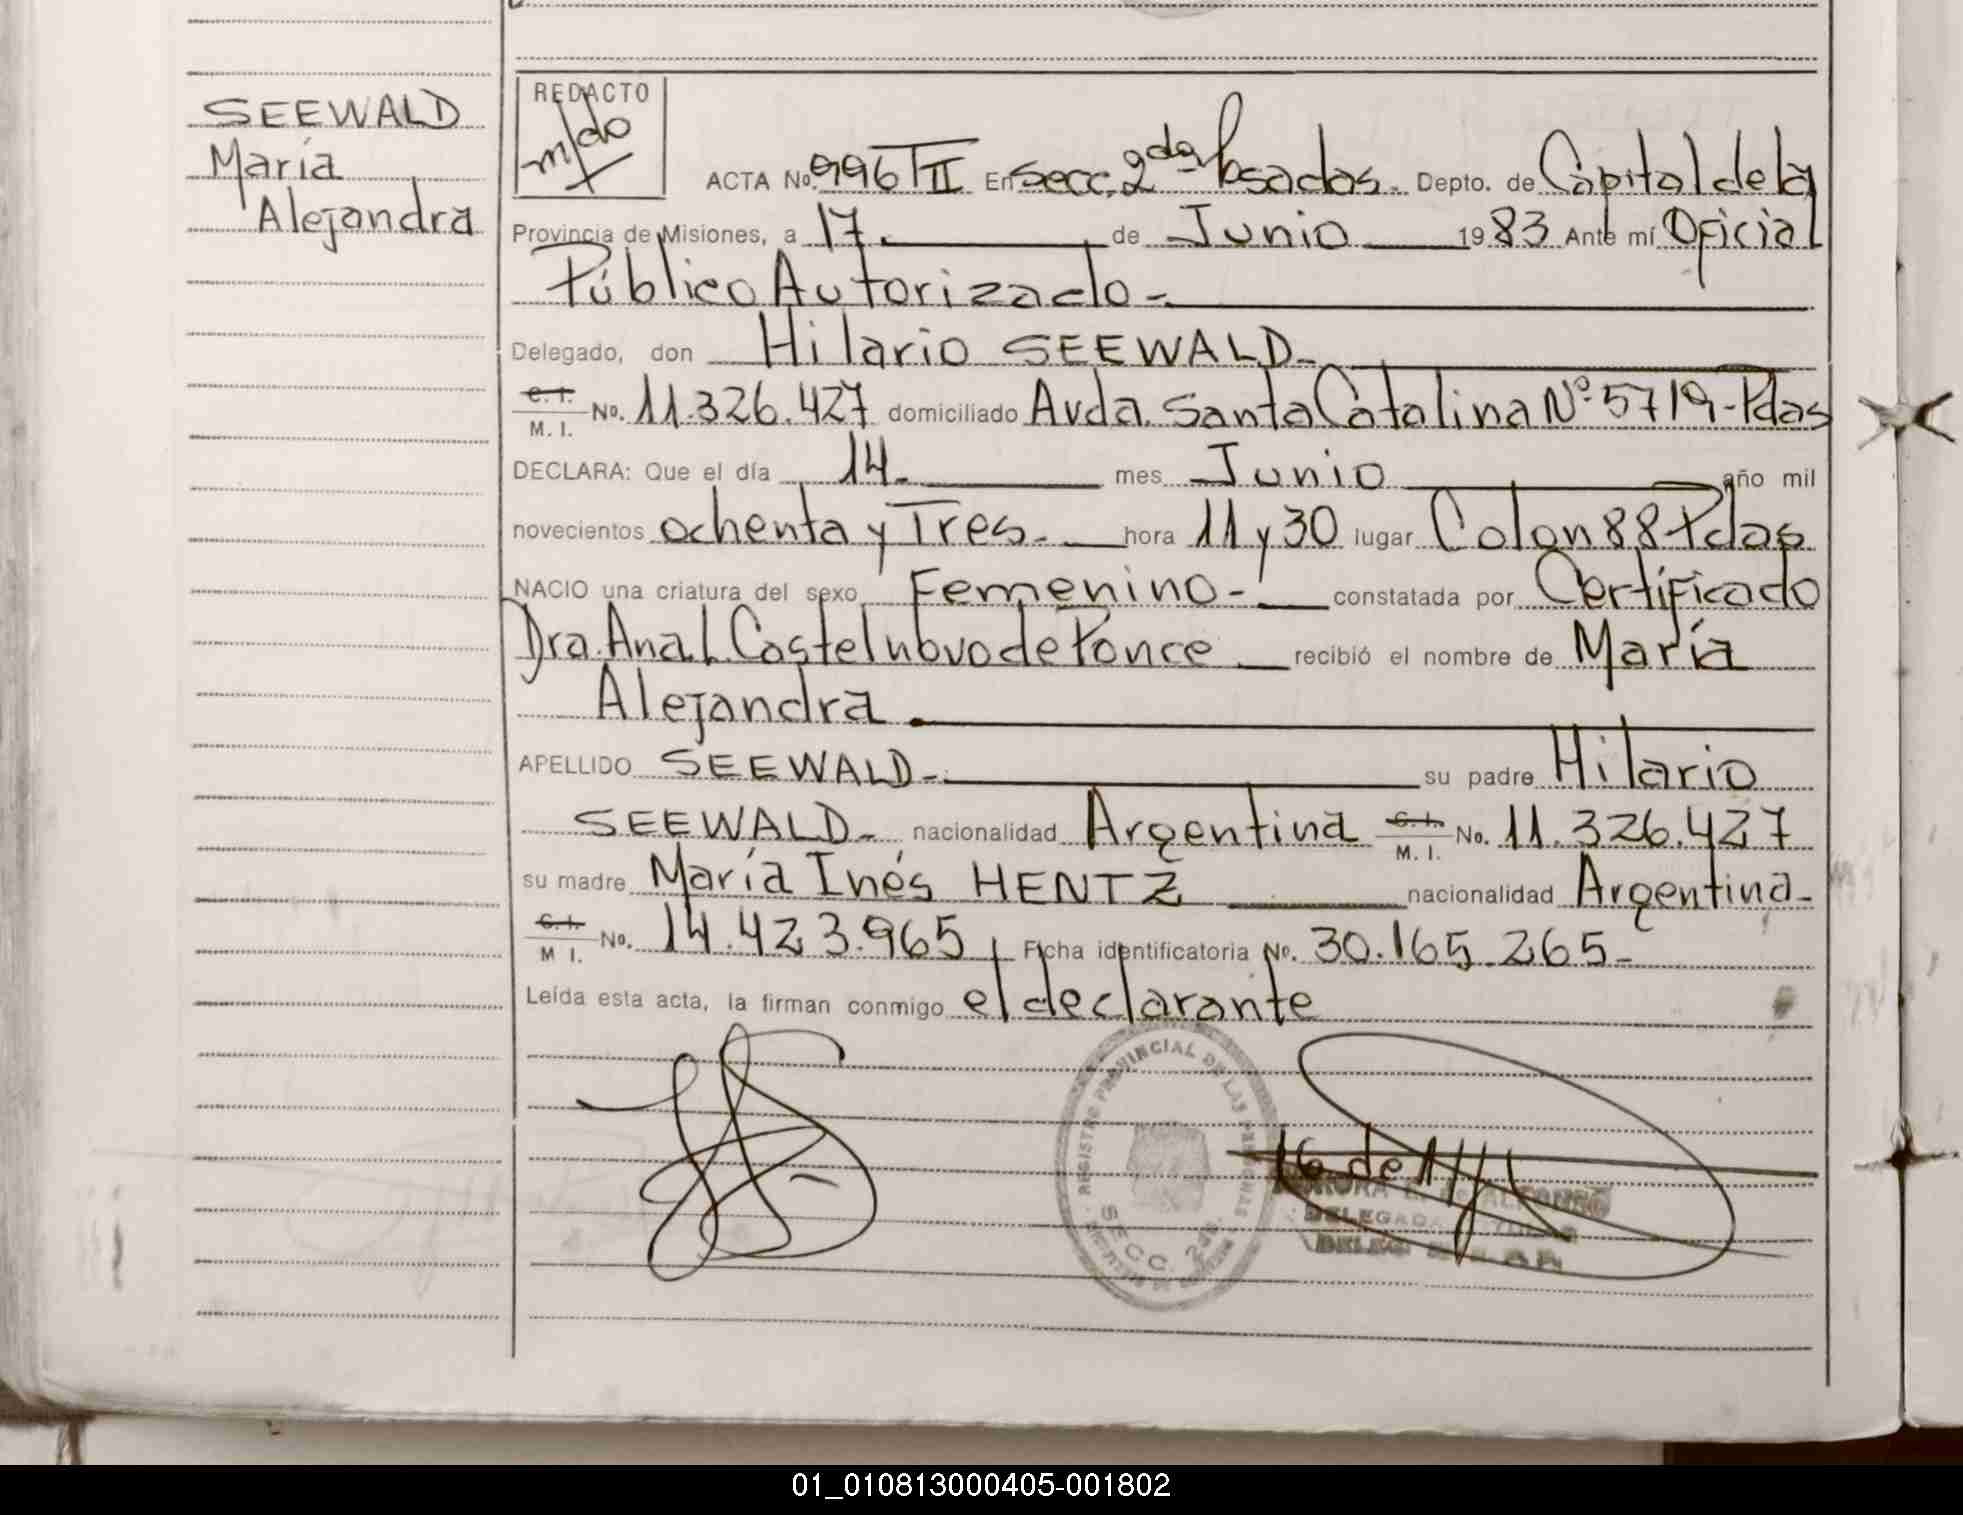 SEEWALD
María
Alejandra
REDACTO
ACTA No. 996 TII En Secc. 2da Posadas. Depto. de Capital de la
Provincia de Misiones, a 17. de Junio 1983 Ante mí Oficial
Público Autorizado-
Delegado, don Hilario SEEWALD-
C. I.
M. I. No. 11.326.427 domiciliado Avda. Santa Catalina Nº 5719-Pdas
DECLARA: Que el día 14. mes Junio año mil
novecientos ochenta y Tres. hora 11 y 30 lugar Colon 88 Pdas
NACIO una criatura del sexo Femenino- constatada por Certificado
Dra. Ana L. Castelnbvo de Ponce recibió el nombre de María
Alejandra
APELLIDO SEEWALD- su padre Hilario
SEEWALD- nacionalidad Argentina C. I.
M. I. No. 11.326.427
su madre María Inés HENTZ nacionalidad Argentina-
C. I.
M I. No. 14.423.965 Ficha identificatoria No. 30.165.265-
Leída esta acta, la firman conmigo el declarante
REGISTRO PROVINCIAL DE LAS PERSONAS
SECC. 2da.
16 de
DELEGADA TITULAR
01_010813000405-001802